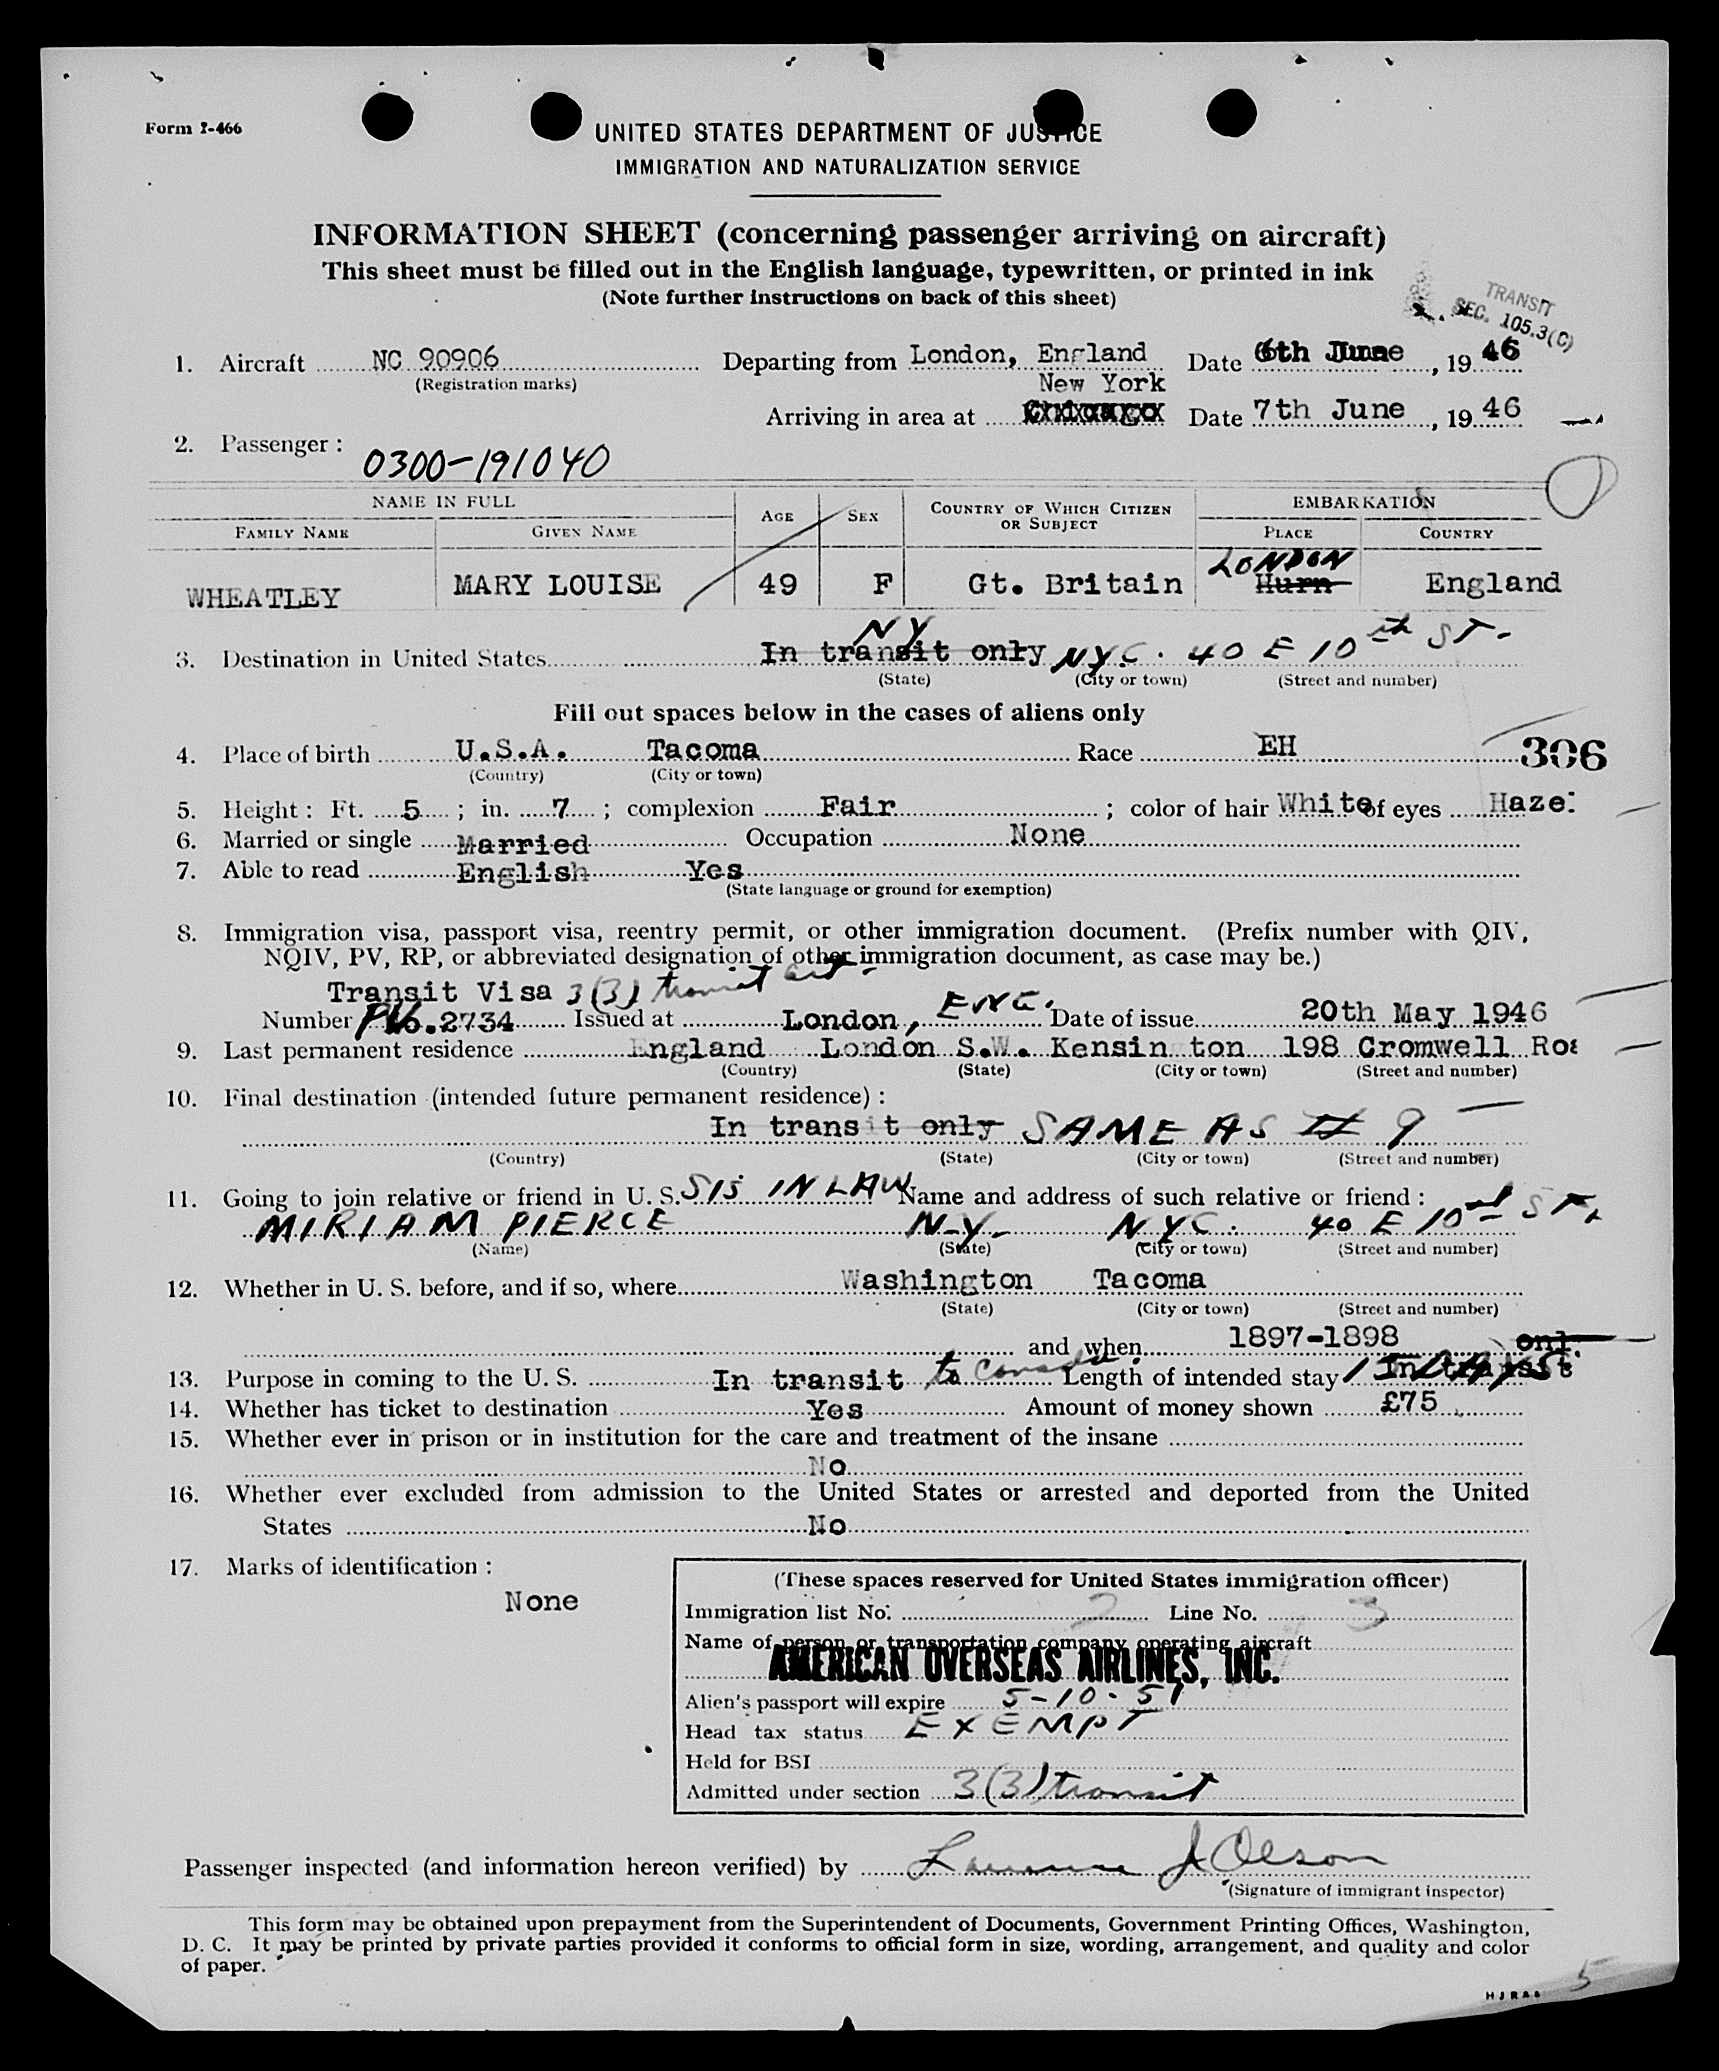 Form I-466
UNITED STATES DEPARTMENT OF JUSTICE
IMMIGRATION AND NATURALIZATION SERVICE
INFORMATION SHEET (concerning passenger arriving on aircraft)
This sheet must be filled out in the English language, typewritten, or printed in ink
(Note further instructions on back of this sheet)
TRANSIT
SEC. 105.3(C)
1. Aircraft NC 90906 Departing from London, England Date 6th June, 19 46
(Registration marks)
New York
Arriving in area at Chicago Date 7th June, 19 46
2. Passenger :
0300-191040
NAME IN FULL AGE SEX COUNTRY OF WHICH CITIZEN OR SUBJECT EMBARKATION
FAMILY NAME GIVEN NAME PLACE COUNTRY
LONDON
WHEATLEY MARY LOUISE 49 F Gt. Britain Hurn England
NY
3. Destination in United States In transit only NYC. 40 E 10th ST.
(State) (City or town) (Street and number)
Fill out spaces below in the cases of aliens only
4. Place of birth U.S.A. Tacoma Race EH 306
(Country) (City or town)
5. Height : Ft. 5 ; in. 7 ; complexion Fair ; color of hair White of eyes Hazel
6. Married or single Married Occupation None
7. Able to read English Yes
(State language or ground for exemption)
8. Immigration visa, passport visa, reentry permit, or other immigration document. (Prefix number with QIV,
NQIV, PV, RP, or abbreviated designation of other immigration document, as case may be.)
Transit Visa 3(3) transit cert
Number PV No.2734 Issued at London, ENG. Date of issue 20th May 1946
9. Last permanent residence England London S.W. Kensin ton 198 Cromwell Roa
(Country) (State) (City or town) (Street and number)
10. Final destination (intended future permanent residence) :
In transit only SAME AS # 9
(Country) (State) (City or town) (Street and number)
11. Going to join relative or friend in U. S. SIS IN LAW Name and address of such relative or friend :
MIRIAM PIERCE N-Y- NYC. 40 E 10th ST.
(Name) (State) (City or town) (Street and number)
12. Whether in U. S. before, and if so, where Washington Tacoma
(State) (City or town) (Street and number)
and when 1897-1898 only
13. Purpose in coming to the U. S. In transit to Canada. Length of intended stay In transit 15 DAYS
14. Whether has ticket to destination Yes Amount of money shown £75
15. Whether ever in prison or in institution for the care and treatment of the insane
No
16. Whether ever excluded from admission to the United States or arrested and deported from the United
States No
17. Marks of identification :
None
(These spaces reserved for United States immigration officer)
Immigration list No. 2 Line No. 3
Name of person or transportation company operating aircraft
AMERICAN OVERSEAS AIRLINES, INC.
Alien's passport will expire 5-10-51
Head tax status EXEMPT
Held for BSI
Admitted under section 3(3) transit
Passenger inspected (and information hereon verified) by Lawrence J Olson
(Signature of immigrant inspector)
This form may be obtained upon prepayment from the Superintendent of Documents, Government Printing Offices, Washington,
D. C. It may be printed by private parties provided it conforms to official form in size, wording, arrangement, and quality and color
of paper.
5